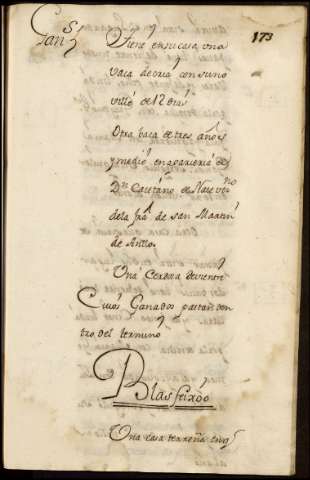 173
Gan.s Tiene en su casa una
Vaca de cria con su no
villo de 12 dias
Otra baca de tres años
y medio en aparieria de
Dn Caietano de
de la fra de san Martin
de
Una Cerda de viente
Cuios Ganados pastan den
tro del termino
Blas feixóo
Una casa terreña